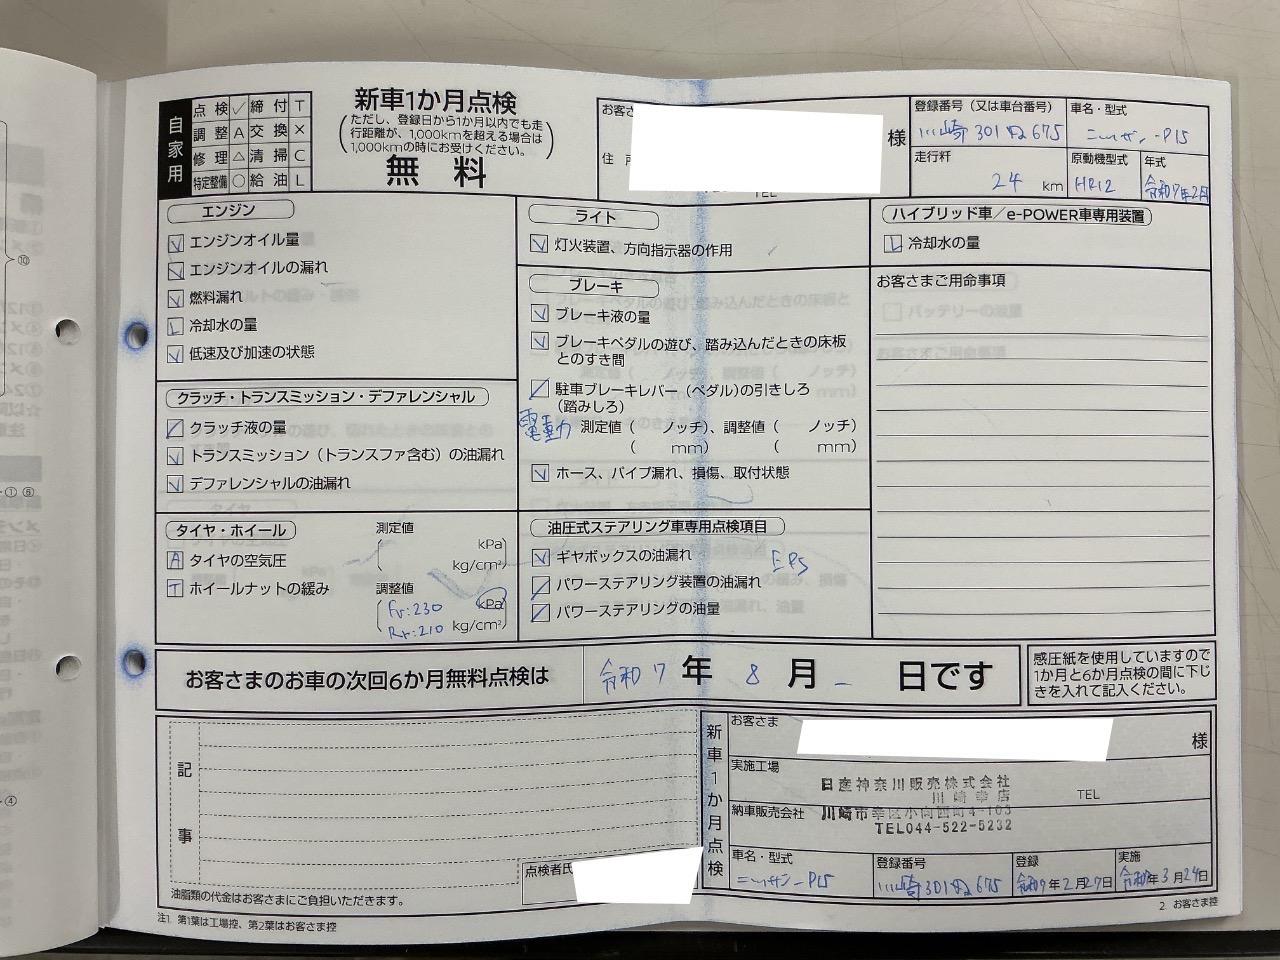 自家用
点検 ✓ 締付 T
調整 A 交換 ×
修理 △ 清掃 C
特定整備 ○ 給油 L
新車1か月点検
(ただし、登録日から1か月以内でも走
行距離が、1,000kmを超える場合は
1,000kmの時にお受けください。)
無料
お客さ
様
住 所
TEL
登録番号(又は車台番号)
川崎 301 ぬ 675
車名・型式
ニッサン-P15
走行粁
24 km
原動機型式
HR12
年式
令和7年2月
エンジン
エンジンオイル量
エンジンオイルの漏れ
燃料漏れ
L 冷却水の量
低速及び加速の状態
クラッチ・トランスミッション・デファレンシャル
クラッチ液の量
トランスミッション(トランスファ含む)の油漏れ
デファレンシャルの油漏れ
タイヤ・ホイール
A タイヤの空気圧
T ホイールナットの緩み
測定値
( kPa
kg/cm²)
調整値
(Fr:230 kPa
Rr:210 kg/cm²)
ライト
灯火装置、方向指示器の作用
ブレーキ
ブレーキ液の量
ブレーキペダルの遊び、踏み込んだときの床板
とのすき間
駐車ブレーキレバー(ペダル)の引きしろ
(踏みしろ)
電動 測定値( ノッチ)、調整値( ノッチ)
( mm) ( mm)
ホース、パイプ漏れ、損傷、取付状態
油圧式ステアリング車専用点検項目
ギヤボックスの油漏れ
EPS
パワーステアリング装置の油漏れ
パワーステアリングの油量
ハイブリッド車/e-POWER車専用装置
L 冷却水の量
お客さまご用命事項
お客さまのお車の次回6か月無料点検は 令和7年8月_日です
感圧紙を使用していますので
1か月と6か月点検の間に下じ
きを入れて記入ください。
記事
油脂類の代金はお客さまにご負担いただきます。
点検者氏
新車1か月点検
お客さま
様
実施工場
日産神奈川販売株式会社
川崎幸店
TEL
納車販売会社
川崎市幸区小向西町4-103
TEL044-522-5232
車名・型式
ニッサン-P15
登録番号
川崎301ぬ675
登録
令和7年2月27日
実施
令和7年3月24日
注1. 第1葉は工場控、第2葉はお客さま控
2. お客さま控